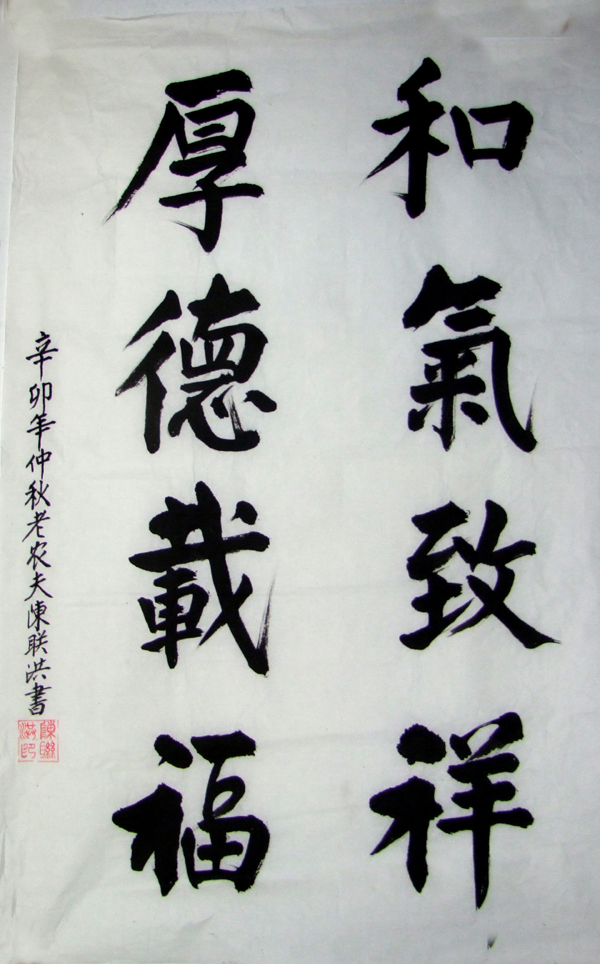 和氣致祥
厚德載福
辛卯年仲秋老农夫陳联洪書
陳聯洪印